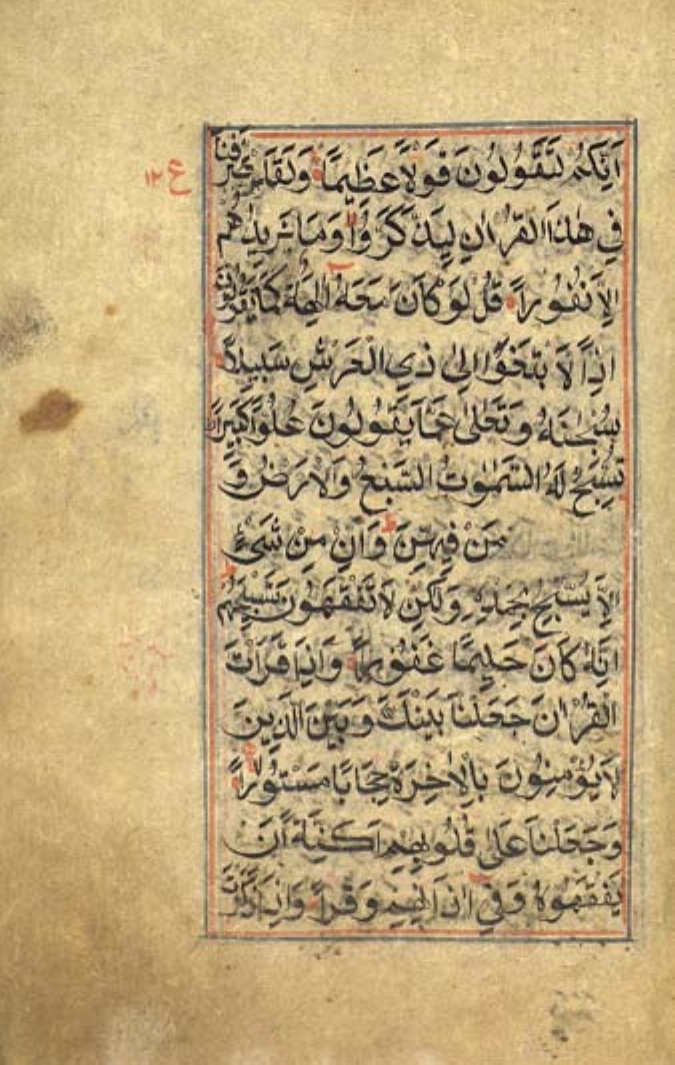 اِنَّكُمْ لَتَقُولُونَ قَوْلًا عَظِيمًا وَلَقَدْ صَرَّفْنَا
ع ١٢
فِي هٰذَا الْقُرْاٰنِ لِيَذَّكَّرُوْا وَمَا يَزِيدُهُمْ
اِلَّا نُفُورًا قُلْ لَوْ كَانَ مَعَهُ اٰلِهَةٌ كَمَا يَقُولُونَ
اِذًا لَابْتَغَوْا اِلٰى ذِي الْعَرْشِ سَبِيلًا
سُبْحٰنَهُ وَتَعٰلٰى عَمَّا يَقُولُونَ عُلُوًّا كَبِيرًا
تُسَبِّحُ لَهُ السَّمٰوٰتُ السَّبْعُ وَالْاَرْضُ وَ
مَنْ فِيهِنَّ وَاِنْ مِنْ شَيْءٍ
اِلَّا يُسَبِّحُ بِحَمْدِهِ وَلٰكِنْ لَا تَفْقَهُونَ تَسْبِيحَهُمْ
اِنَّهُ كَانَ حَلِيمًا غَفُورًا وَاِذَا قَرَاْتَ
الْقُرْاٰنَ جَعَلْنَا بَيْنَكَ وَبَيْنَ الَّذِينَ
لَا يُؤْمِنُونَ بِالْاٰخِرَةِ حِجَابًا مَسْتُورًا
وَجَعَلْنَا عَلٰى قُلُوبِهِمْ اَكِنَّةً اَنْ
يَفْقَهُوهُ وَفِي اٰذَانِهِمْ وَقْرًا وَاِذَا ذَكَرْتَ